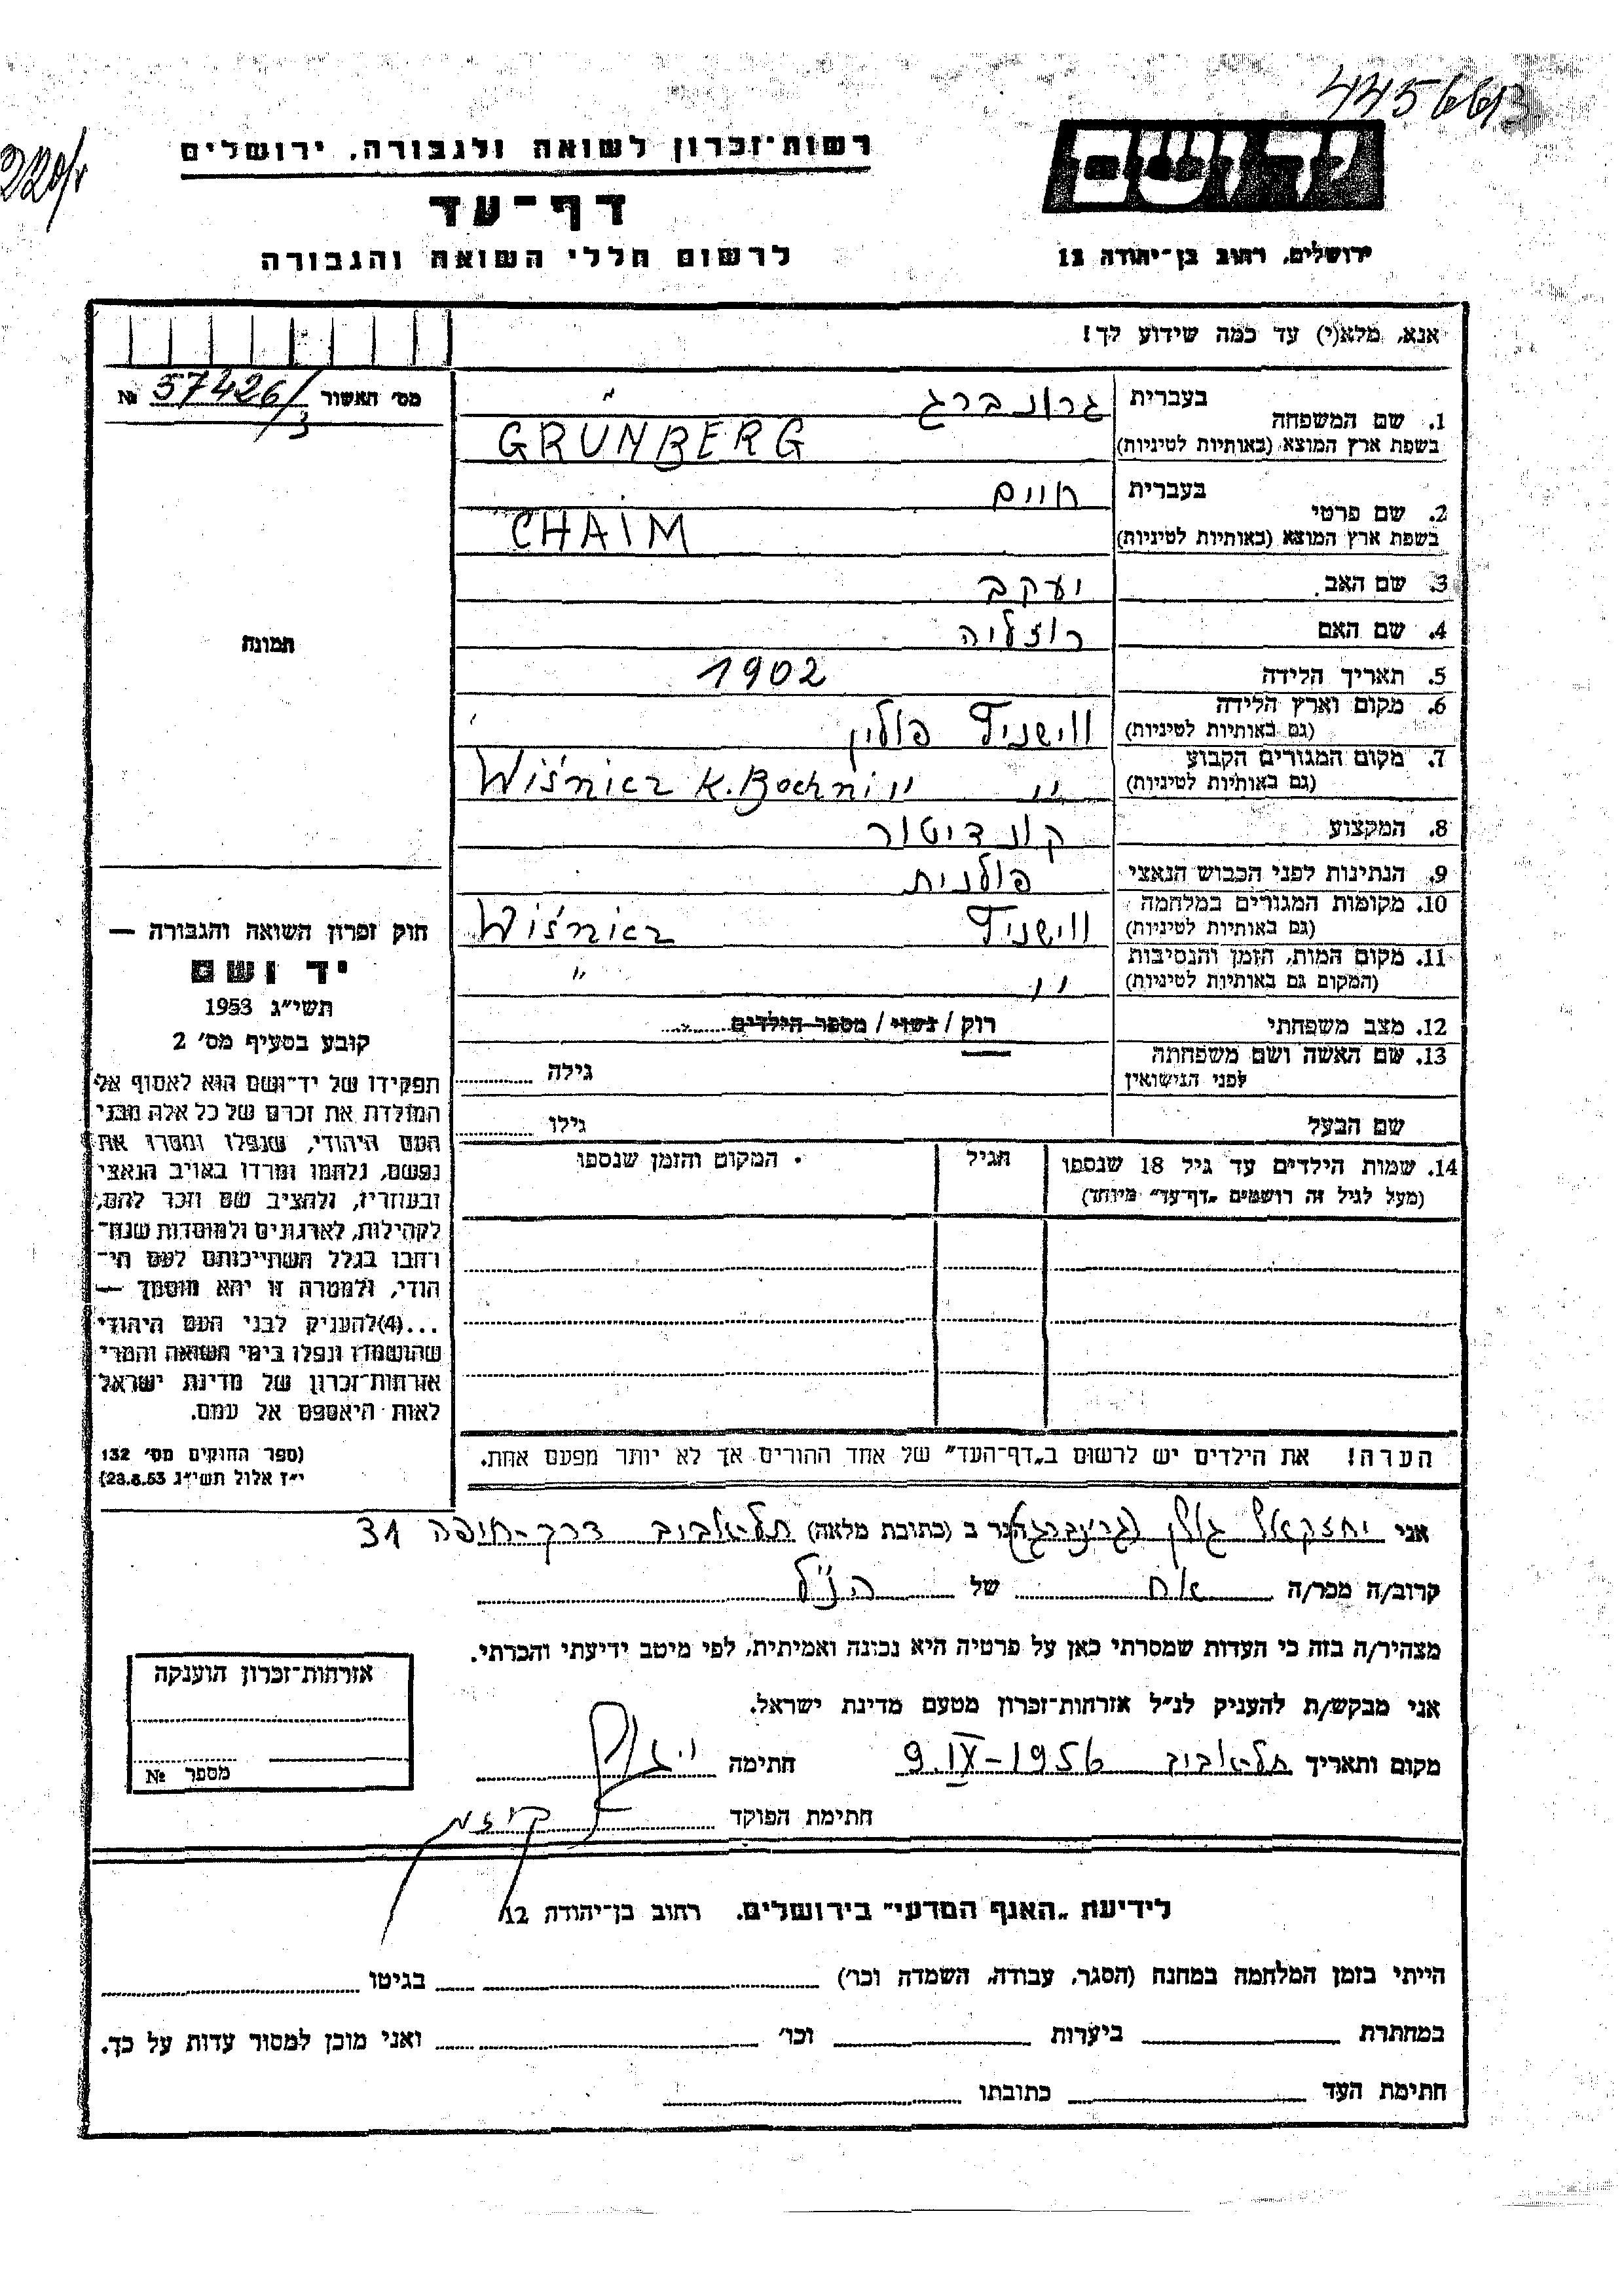 4456613
220/v
יד ושם
רשות־זכרון לשואה ולגבורה, ירושלים
דף־עד
לרשום חללי השואה והגבורה
ירושלים, רחוב בן־יהודה 12
אנא, מלא(י) עד כמה שידוע לך!
מס׳ האשור 57426/3 №
1. שם המשפחה בעברית גרונברג
בשפת ארץ המוצא (באותיות לטיניות) GRUNBERG
2. שם פרטי בעברית חיים
בשפת ארץ המוצא (באותיות לטיניות) CHAIM
3. שם האב יעקב
4. שם האם רוזליה
5. תאריך הלידה 1902
6. מקום וארץ הלידה
(גם באותיות לטיניות) ווישניץ פולין
7. מקום המגורים הקבוע
(גם באותיות לטיניות) " " Wiśnicz K. Bochni
8. המקצוע קונדיטור
9. הנתינות לפני הכבוש הנאצי פולנית
10. מקומות המגורים במלחמה
(גם באותיות לטיניות) ווישניץ Wiśnicz
11. מקום המות, הזמן והנסיבות
(המקום גם באותיות לטיניות) " "
12. מצב משפחתי רוק / נשוי / מספר הילדים
13. שם האשה ושם משפחתה
לפני הנישואין גילה
שם הבעל גילו
14. שמות הילדים עד גיל 18 שנספו הגיל המקום והזמן שנספו
(מעל לגיל זה רושמים „דף־עד" מיוחד)
הערה! את הילדים יש לרשום ב„דף־העד" של אחד ההורים אך לא יותר מפעם אחת.
תמונה
חוק זכרון השואה והגבורה —
יד ושם
תשי״ג 1953
קובע בסעיף מס׳ 2
תפקידו של יד־ושם הוא לאסוף אל
המולדת את זכרם של כל אלה מבני
העם היהודי, שנפלו ומסרו את
נפשם, נלחמו ומרדו באויב הנאצי
ובעוזריו, ולהציב שם וזכר להם,
לקהילות, לארגונים ולמוסדות שנח־
רחבו בגלל השתייכותם לעם הי־
הודי, ולמטרה זו יהא מוסמך —
...(4)להעניק לבני העם היהודי
שהושמדו ונפלו בימי השואה והמרי
אזרחות־זכרון של מדינת ישראל
לאות היאספם אל עמם.
(ספר החוקים מס׳ 132
י״ז אלול תשי״ג 28.8.53)
אני יחזקאל גולן (גרינברג) הגר ב (כתובת מלאה) תל-אביב דרך-חיפה 31
קרוב/ה מכר/ה אח של הנ״ל
מצהיר/ה בזה כי העדות שמסרתי כאן על פרטיה היא נכונה ואמיתית, לפי מיטב ידיעתי והכרתי.
אני מבקש/ת להעניק לנ״ל אזרחות־זכרון מטעם מדינת ישראל.
מקום ותאריך תל-אביב 9.IX-1956 חתימה
חתימת הפוקד
אזרחות־זכרון הוענקה
מספר №
לידיעת „האגף המדעי" בירושלים. רחוב בן־יהודה 12
הייתי בזמן המלחמה במחנה (הסגר, עבודה, השמדה וכו׳) בגיטו
במחתרת ביערות וכו׳ ואני מוכן למסור עדות על כך.
חתימת העד כתובתו